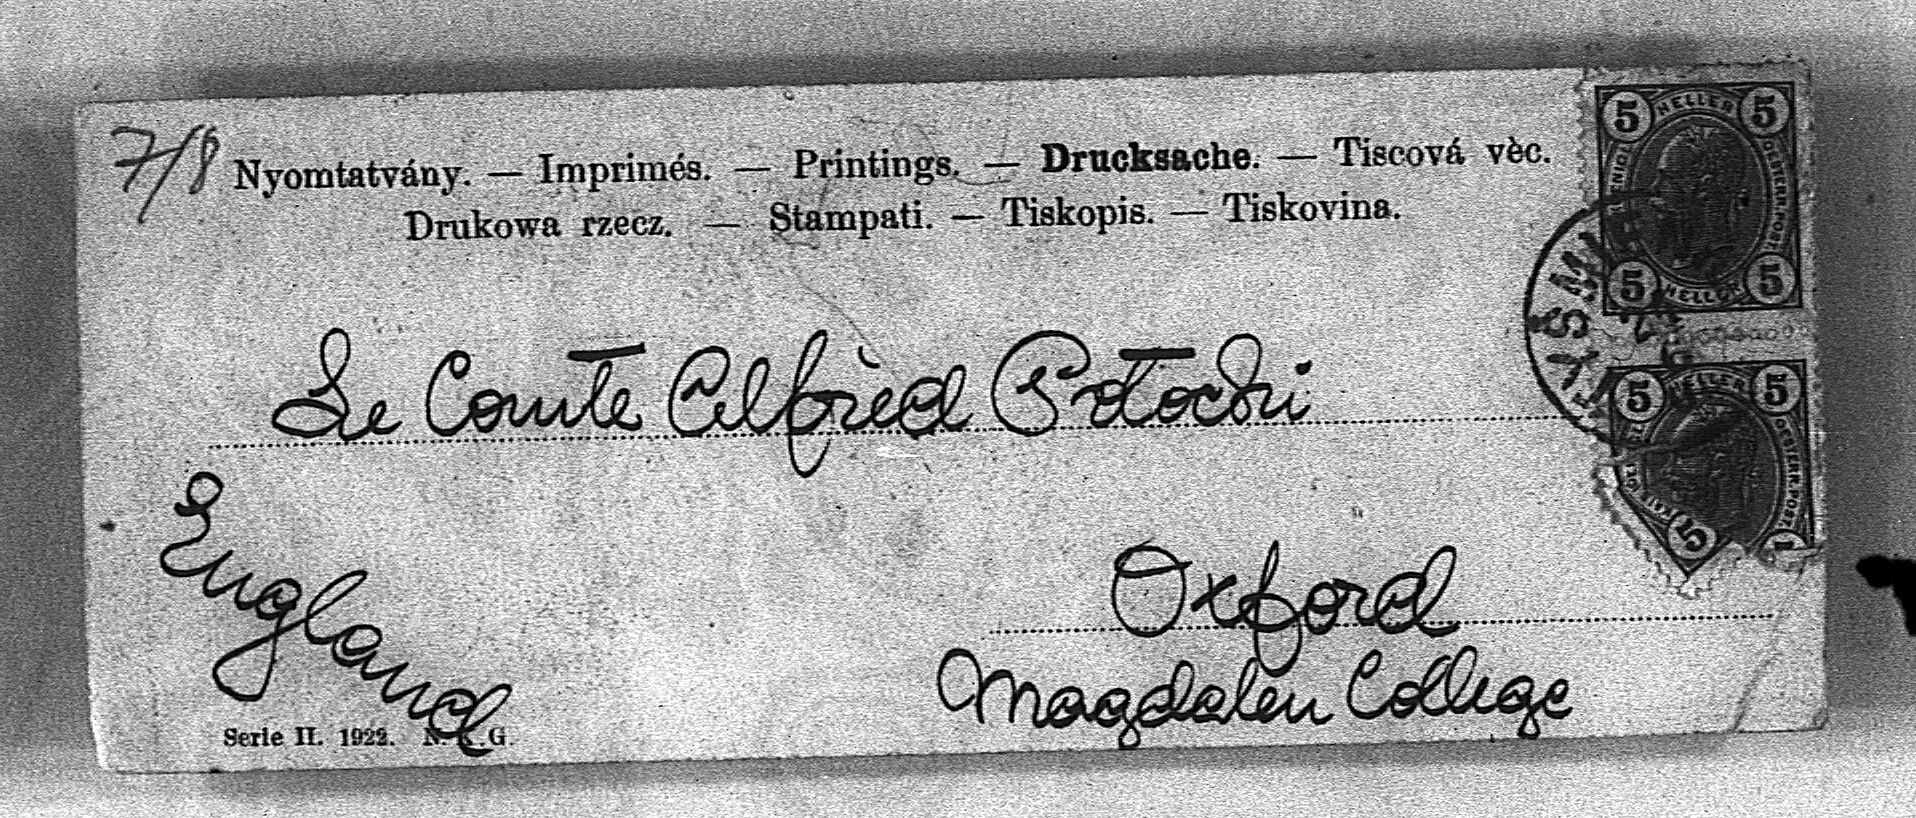 7/8
Nyomtatvány. — Imprimés. — Printings. — Drucksache. — Tiscová vĕc.
Drukowa rzecz. — Stampati. — Tiskopis. — Tiskovina.
5 HELLER 5
5 HELLER 5
5 HELLER 5
5
Le Comte Alfred Potocki
England
Oxford
Magdalen College
Serie II. 1922.